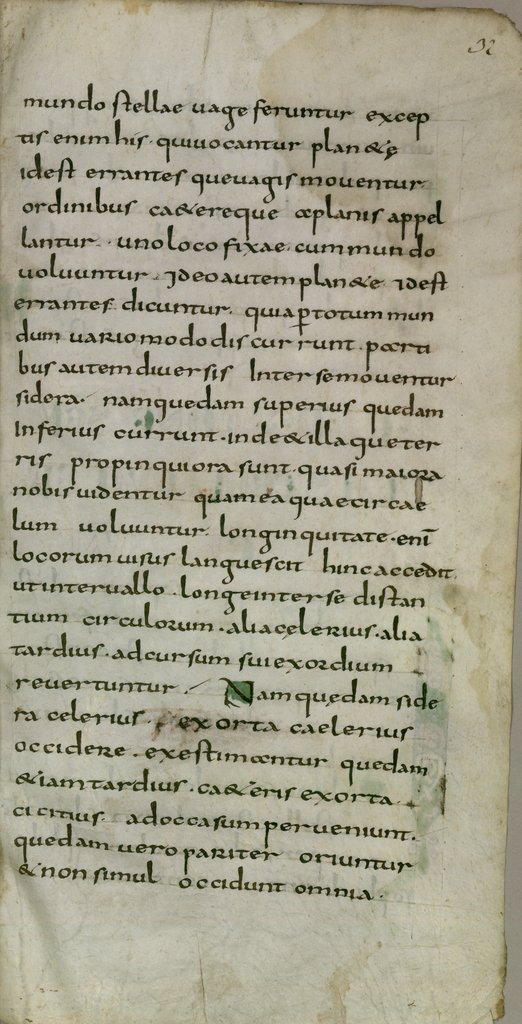 32
mundo stellae uage feruntur excep
tis enim his · qui uocantur plan&ę
idest errantes que uagis mouentur
ordinibus ca&ereque aplanis appel
lantur · uno loco fixae cum mundo
uoluuntur · Ideo autem plan&e idest
errantes dicuntur · quia ꝑ totum mun
dum uario modo discurrunt · parti
bus autem diuersis Inter se mouentur
sidera · nam quedam superius quedam
Inferius currunt · inde & illa que ter
ris propinquiora sunt · quasi maiora
nobis uidentur quam ea quae circa e
lum uoluuntur · longinquitate · eni̅
locorum uisus languescit hinc accedit
ut interuallo · longe inter se distan
tium circulorum · alia celerius · alia
tardius · ad cursum sui exordium
reuertuntur · Nam quędam side
ra celerius · exorta caelerius
occidere · exestimantur quedam
& iam tardius · ca&eris exorta
ci citius · ad occasum perueniunt ·
quedam uero pariter oriuntur
& non simul occidunt omnia ·